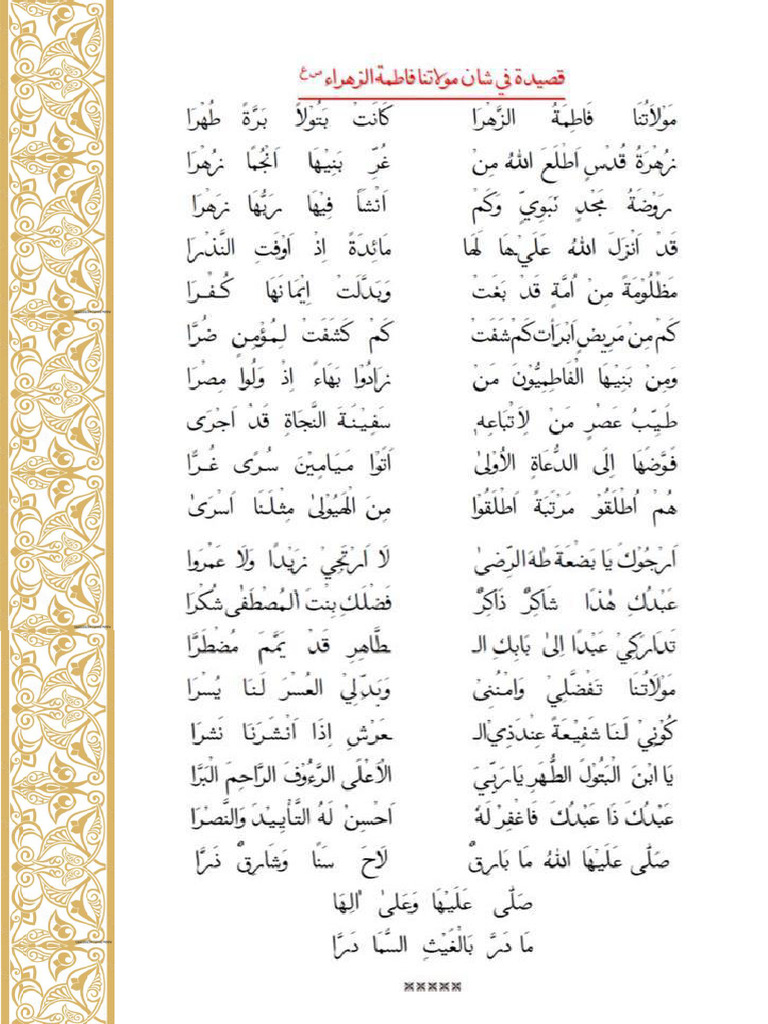 قصيدة في شان مولاتنا فاطمة الزهراء ص ع
مَوْلَاتُنَا فَاطِمَةُ الزَّهْرَا كَانَتْ بَتُوْلاً بَرَّةً طُهْرَا
زُهْرَةُ قُدْسٍ اَطْلَعَ اللهُ مِنْ غُرِّ بَنِيْهَا اَنْجُمًا زُهْرَا
رَوْضَةُ مَجْدٍ نَبَوِيٍّ وَكَمْ اَنْشَاَ فِيْهَا رَبُّهَا زَهْرَا
قَدْ اَنْزَلَ اللهُ عَلَيْهَا لَهَا مَائِدَةً اِذْ اَوْفَتِ النَّذْرَا
مَظْلُوْمَةً مِنْ اُمَّةٍ قَدْ بَغَتْ وَبَدَّلَتْ اِيْمَانَهَا كُفْرَا
كَمْ مِنْ مَرِيْضٍ اَبْرَأَتْ كَمْ شَفَتْ كَمْ كَشَفَتْ لِمُؤْمِنٍ ضُرَّا
وَمِنْ بَنِيْهَا الْفَاطِمِيُّوْنَ مَنْ زَادُوْا بَهَاءً اِذْ وَلُوْا مِصْرَا
طَيِّبُ عَصْرٍ مَنْ لِاَتْبَاعِهِ سَفِيْنَةَ النَّجَاةِ قَدْ اَجْرَى
فَوَّضَهَا اِلَى الدُّعَاةِ الْاُوْلىٰ اَتَوْا مَيَامِيْنَ سُرًى غُرَّا
هُمْ اُطْلَقُوْ مَرْتَبَةً اَطْلَقُوْا مِنَ الْهَيُوْلىٰ مِثْلَنَا اَسْرىٰ
اَرْجُوْكِ يَا بَضْعَةَ طٰهَ الرِّضىٰ لَا اَرْتَجِيْ زَيْدًا وَلَا عَمْرَوا
عَبْدُكِ هٰذَا شَاكِرٌ ذَاكِرٌ فَضْلَكِ بِنْتَ الْمُصْطَفٰى شُكْرَا
تَدَارَكِيْ عَبْدًا اِلىٰ بَابِكِ الـ ـطَّاهِرِ قَدْ يَمَّمَ مُضْطَرَّا
مَوْلَاتُنَا تَفَضَّلِيْ وَامْنُنِىْ وَبَدِّلِيْ الْعُسْرَ لَنَا يُسْرَا
كُوْنِيْ لَنَا شَفِيْعَةً عِنْدَ ذِيْ الـ ـعَرْشِ اِذَا اَنْشَرَنَا نَشْرَا
يَا ابْنَ الْبَتُوْلَ الطُّهْرَ يَا رَبِّيَ الْاَعْلَى الرَّءُوْفَ الرَّاحِمَ الْبَرَّا
عَبْدُكَ ذَا عَبْدُكَ فَاغْفِرْ لَهُ اَحْسِنْ لَهُ التَّأْيِيْدَ وَالنَّصْرَا
صَلّٰى عَلَيْهَا اللهُ مَا بَارِقٌ لَاحَ سَنًا وَشَارِقٌ ذَرَّا
صَلّٰى عَلَيْهَا وَعَلىٰ اٰلِهَا
مَا دَرَّ بَالْغَيْثِ السَّمَا دَرَّا